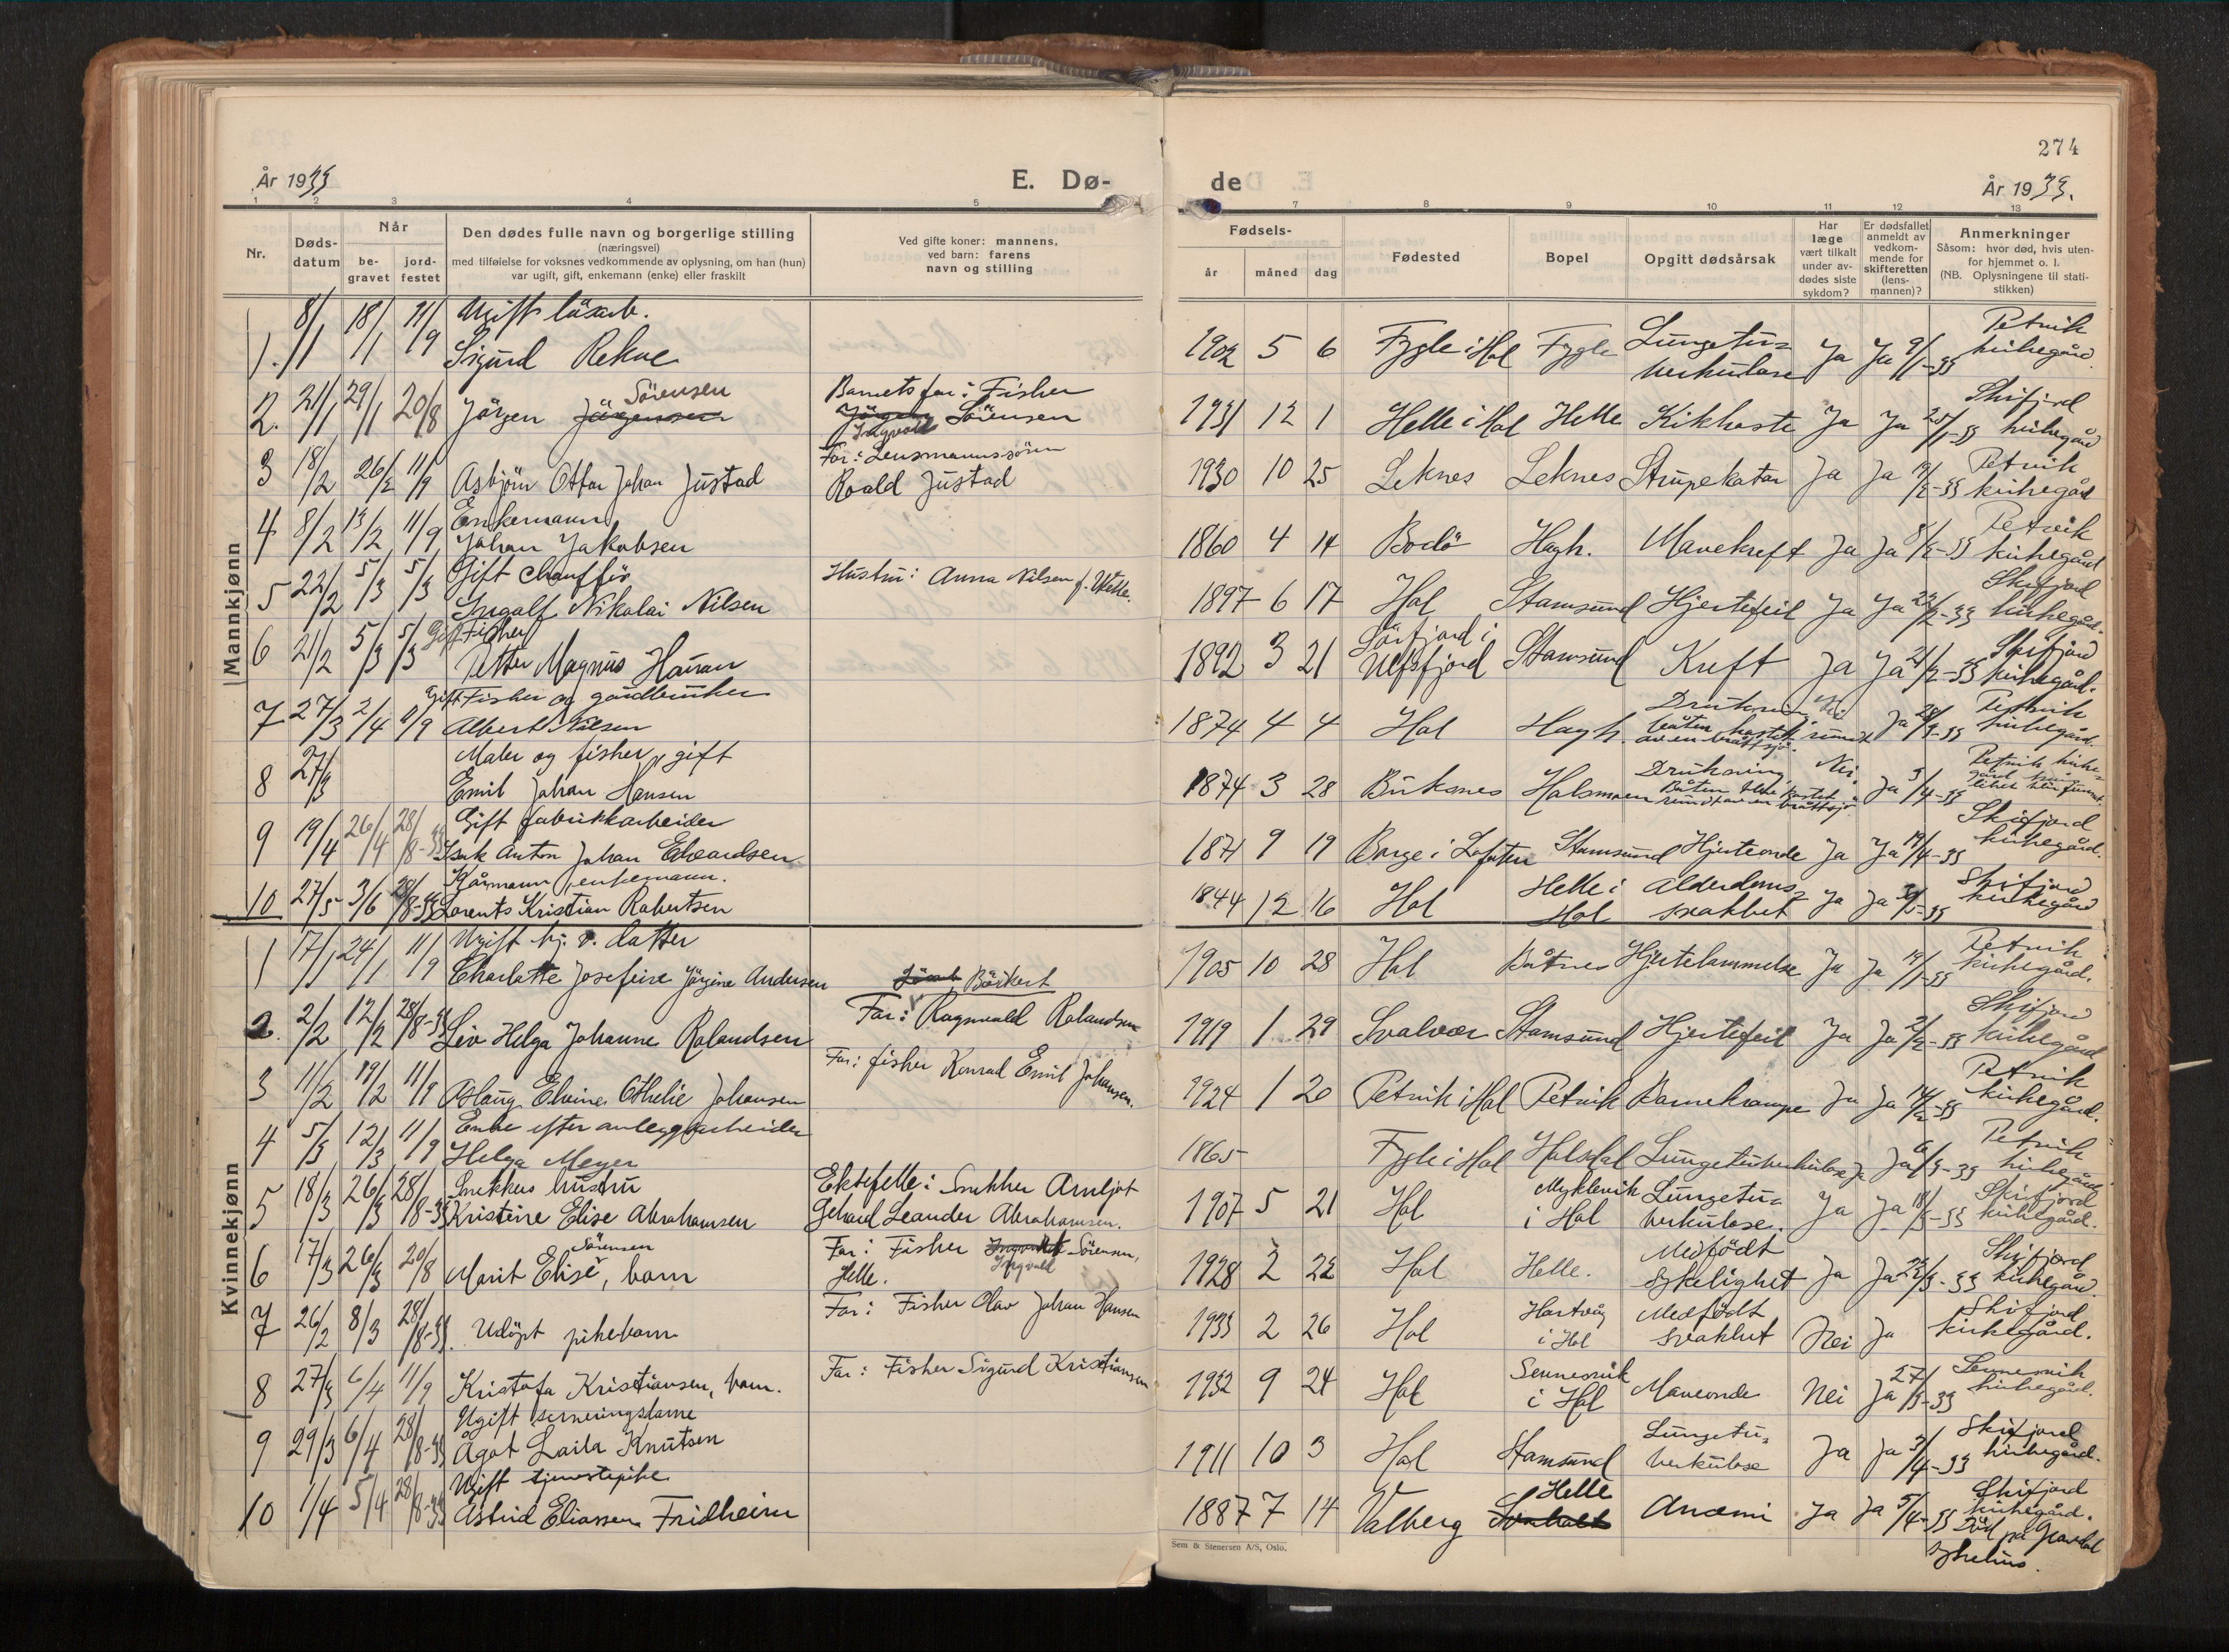 274
År 1933
E. Dø-
de
År 1933.
1 2 3 4 5 7 8 9 10 11 12 13
Nr.
Døds-
datum
Når
be-
gravet
jord-
festet
Den dødes fulle navn og borgerlige stilling
(næringsvei)
med tilføielse for voksnes vedkommende av oplysning, om han (hun)
var ugift, gift, enkemann (enke) eller fraskilt
Ved gifte koner: mannens,
ved barn: farens
navn og stilling
Fødsels-
år måned dag
Fødested
Bopel
Opgitt dødsårsak
Har
læge
vært tilkalt
under av-
dødes siste
sykdom?
Er dødsfallet
anmeldt av
vedkom-
mende for
skifteretten
(lens-
mannen)?
Anmerkninger
Såsom: hvor død, hvis uten-
for hjemmet o. l.
(NB. Oplysningene til stati-
stikken)
Mannkjønn
Ugift løsarb.
1. 8/1 18/1 11/9 Sigurd Rekve 1902 5 6 Fygle i Hol Fygle Lungetu=
berkulose Ja Ja 9/1-33 Petvik
kirkegård
2. 21/1 29/1 20/8 Jörgen Jörgensen Sörensen Barnets far: Fisker
Jörgen Ingvald Sörensen 1931 12 1 Helle i Hol Helle Kikhoste Ja Ja 25/1-33 Skifjord
kirkegård
3 18/2 26/2 11/9 Asbjörn Ottar Johan Justad Far: Lensmannssönn
Roald Justad 1930 10 25 Leknes Leknes Strupekatar Ja Ja Petvik
kirkegård
Enkemann
4 8/2 13/2 11/9 Johan Jakobsen 1860 4 14 Bodö Hagh. Mavekreft Ja Ja 8/2-33 Petvik
kirkegård
Gift chaufför
5 22/2 5/3 5/3 Ingolf Nikolai Nilsen Hustru: Anna Nilsen f. 1897 6 17 Hol Stamsund Hjertefeil Ja Ja Skifjord
kirkegård.
Gift Fisker
6 21/2 5/3 5/3 Petter Magnus Hauan 1892 3 21 Sörfjord i
Ulfsfjord Stamsund Kreft Ja Ja Skifjord
kirkegård.
Gift Fisker og gårdbruker
7 27/3 2/4 11/9 Albert Nilsen 1874 4 4 Hol Hagh. Drukning, båten kastet rundt
av en bråttsjö. Nei Ja Petvik
kirkegård.
Maler og fisker, gift
8 27/3 Emil Johan Hansen 1874 3 28 Buksnes Holsmoen Drukning
Båten blev kastet
rundt av en bråttsjö. Nei. Ja 5/4-33 Petvik kirke-
Gift fabrikkarbeider
9 19/4 26/4 28/8-33 Isak Anton Johan Edvardsen 1871 9 19 Borge i Lofoten Stamsund Hjerteonde Ja Ja 19/4-33 Skifjord
kirkegård.
Kårmann, enkemann.
10 27/5 3/6 28/8-33 Lorents Kristian Robertsen 1844 12 16 Hol Helle i
Hol Alderdoms
svakhet Ja Ja Skifjord
kirkegård
Kvinnekjønn
Ugift hj. v. datter
1 17/1 24/1 11/9 Charlotte Josefine Jörgine Andersen 1905 10 28 Hol Båtnes Hjertelammelse Ja Ja 19/1-33 Petvik
kirkegård.
2. 2/2 12/2 28/8-33 Liv Helga Johanne Rolandsen Far: Ragnvald Rolandsen 1919 1 29 Svolvær Stamsund Hjertefeil Ja Ja 2/2-33 Skifjord
kirkegård
3 11/2 19/2 11/9 Aslaug Elvine Othelie Johansen Far: fisker Konrad Emil Johansen. 1924 1 20 Petvik i Hol Petvik Barnekrampe Ja Ja 14/2-33 Petvik
kirkegård.
Enke efter anleggsarbeider
4 5/3 12/3 11/9 Helga Meyer 1865 Fygle i Hol Holsdal Lungetuberkulose Ja Ja 6/3-33 Petvik
kirkegård
Snekkers hustru
5 18/3 26/3 28/8-33 Kristine Elise Abrahamsen Ektefelle: Snekker Arnljot
Gehard Leander Abrahamsen. 1907 5 21 Hol Myklevik
i Hol Lungetu-
berkulose. Ja Ja 18/3-33 Skifjord
kirkegård.
6 17/3 26/3 20/8 Marit Elise Sörensen, barn Far: Fisker Ingvald Sörensen,
Helle. 1928 2 22 Hol Helle. Medfödt
sykelighet Ja Ja Skifjord
kirkegård.
7 26/2 8/3 28/8-33. Udöpt pikebarn Far: Fisker Olav Johan Hansen 1933 2 26 Hol Hartvåg
i Hol Medfödt
svakhet Nei Ja Skifjord
kirkegård.
8 27/3 6/4 11/9 Kristofa Kristiansen, barn. Far: Fisker Sigurd Kristiansen 1932 9 24 Hol Sennesvik
i Hol Maveonde Nei Ja 27/3-33 Sennesvik
kirkegård.
Ugift serveringsdame
9 29/3 6/4 28/8-33 Ågot Laila Knutsen 1911 10 3 Hol Stamsund Lungetu=
berkulose Ja Ja 3/4-33 Skifjord
kirkegård.
Ugift tjenestepike
10 1/4 5/4 28/8-33 Astrid Eliassen Fridheim 1887 7 14 Valberg Helle Anæmi Ja Ja 5/4-33 Skifjord
kirkegård.
Död på Gravdal
sykehus.
Sem & Stenersen A/S, Oslo.